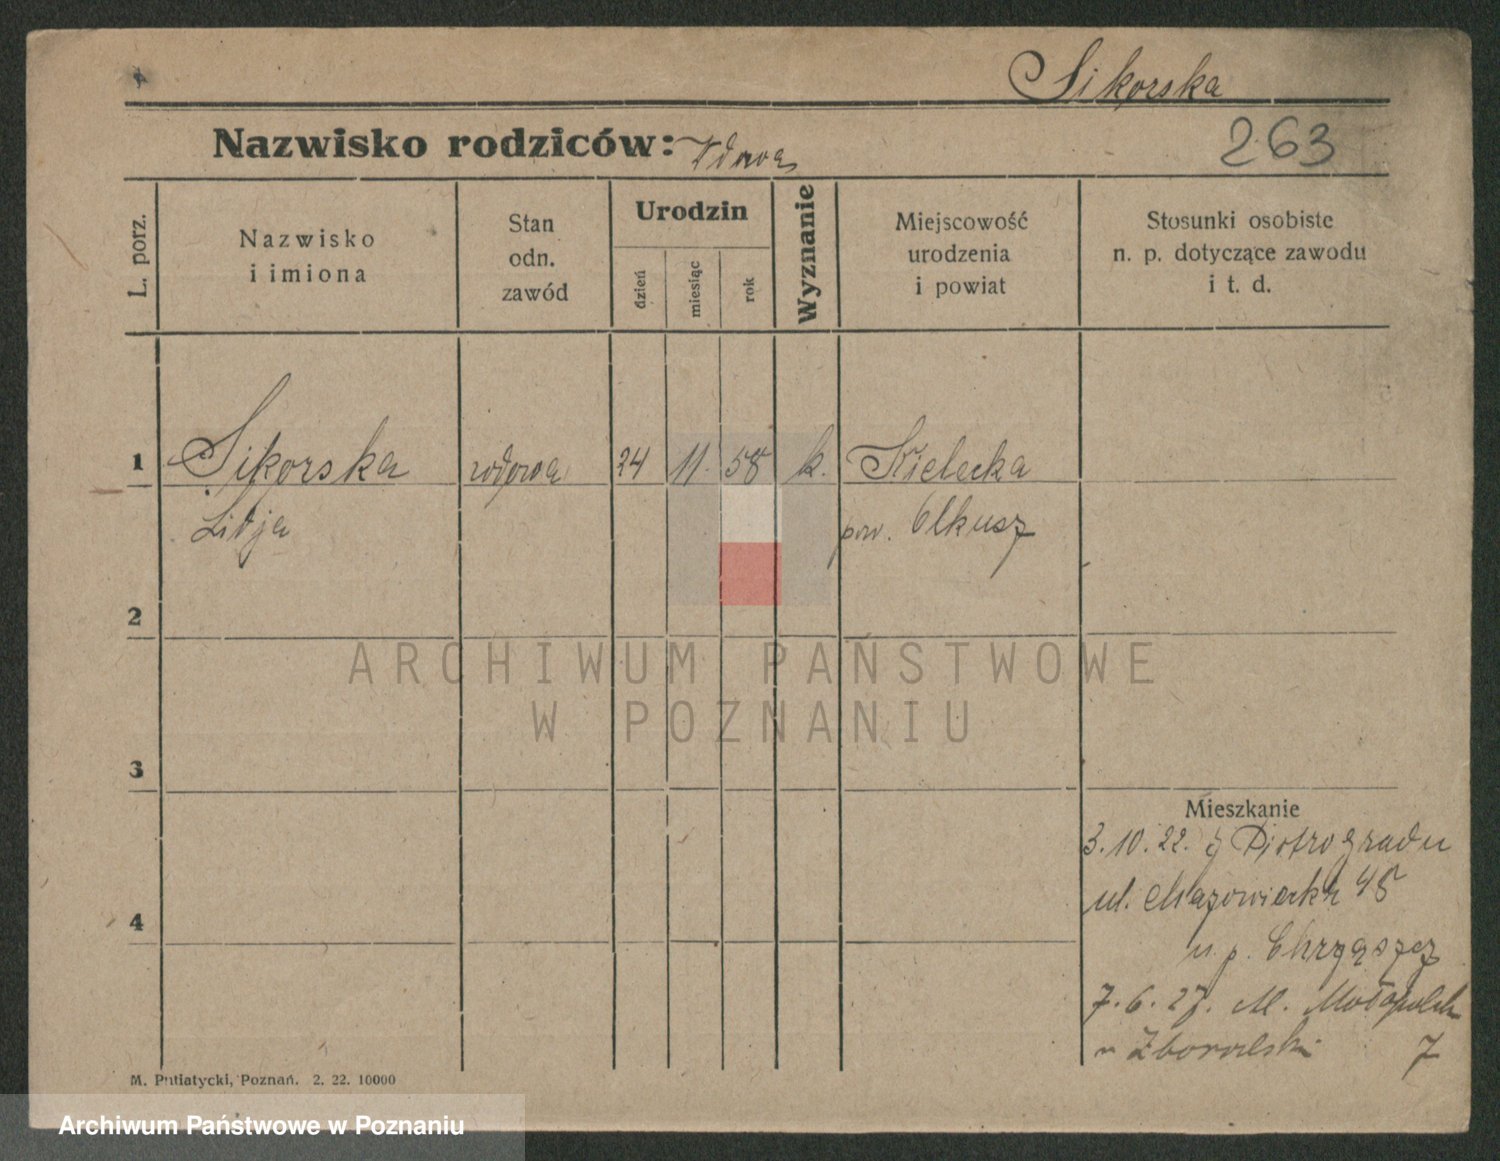 Sikorska
Nazwisko rodziców: wdowa
263
L. porz.
Nazwisko
i imiona
Stan
odn.
zawód
Urodzin
dzień
miesiąc
rok
Wyznanie
Miejscowość
urodzenia
i powiat
Stosunki osobiste
n. p. dotyczące zawodu
i t. d.
1 Sikorska wdowa 24 11. 58 k. Kielecka
Lidja pow. Olkusz
2
ARCHIWUM PAŃSTWOWE
W POZNANIU
3
Mieszkanie
3.10.22. z Piotrogradu
ul. Mazowiecka 45
4
u p. Chrząszcz
7.6.27. M.
7
M. Putiatycki, Poznań. 2. 22. 10000
Archiwum Państwowe w Poznaniu